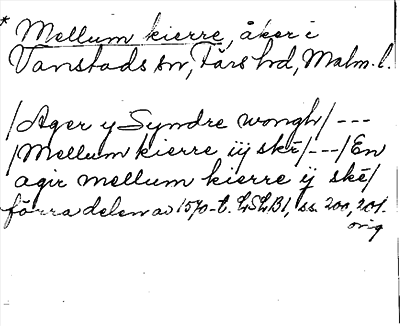 * Mellum kierre, åker i
Vanstads sn, Färs hd, Malm. l.
/Ager y Syndre wongh/ ---
/Mellum kierre iij skē/---/En
agir mellum kierre ij skē/
förra delen av 1570-t. LSLB1, ss. 200, 201.
orig